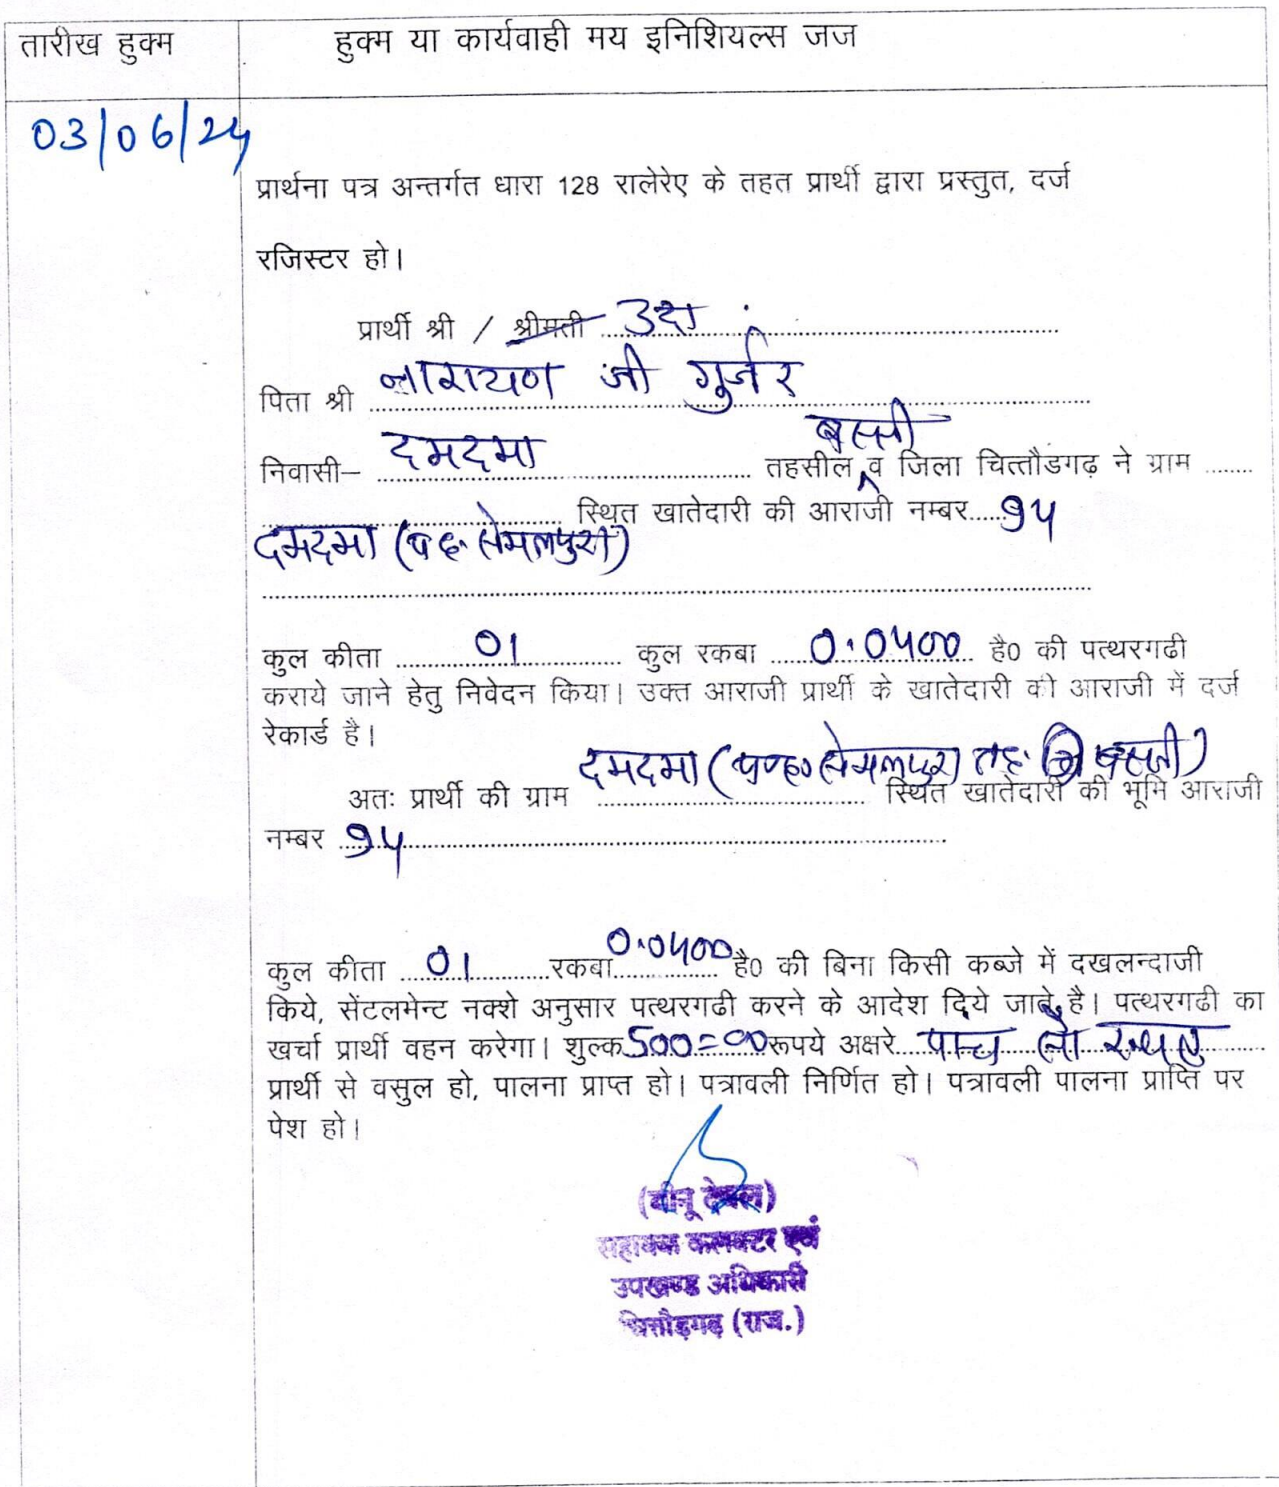 तारीख हुक्म
हुक्म या कार्यवाही मय इनिशियल्स जज
03/06/24
प्रार्थना पत्र अन्तर्गत धारा 128 रालेरेए के तहत प्रार्थी द्वारा प्रस्तुत, दर्ज
रजिस्टर हो।
प्रार्थी श्री / श्रीमती उदा
पिता श्री नारायण जी गुर्जर
बस्सी
निवासी– दमदमा तहसील व जिला चित्तौडगढ़ ने ग्राम
स्थित खातेदारी की आराजी नम्बर 94
दमदमा (प.ह. सेमलपुरा)
कुल कीता 01 कुल रकबा 0.0400 है0 की पत्थरगढी
कराये जाने हेतु निवेदन किया। उक्त आराजी प्रार्थी के खातेदारी की आराजी में दर्ज
रेकार्ड है।
दमदमा (प0ह0 सेमलपुरा तह. बस्सी)
अतः प्रार्थी की ग्राम स्थित खातेदारी की भूमि आराजी
नम्बर 94
कुल कीता 01 रकबा 0.0400 है0 की बिना किसी कब्जे में दखलन्दाजी
किये, सेंटलमेन्ट नक्शे अनुसार पत्थरगढी करने के आदेश दिये जाते है। पत्थरगढी का
खर्चा प्रार्थी वहन करेगा। शुल्क 500=00 रूपये अक्षरे पान्च सो रूपए
प्रार्थी से वसुल हो, पालना प्राप्त हो। पत्रावली निर्णित हो। पत्रावली पालना प्राप्ति पर
पेश हो।
(बीनू देवल)
सहायक कलक्टर एवं
उपखण्ड अधिकारी
चित्तौड़गढ़ (राज.)